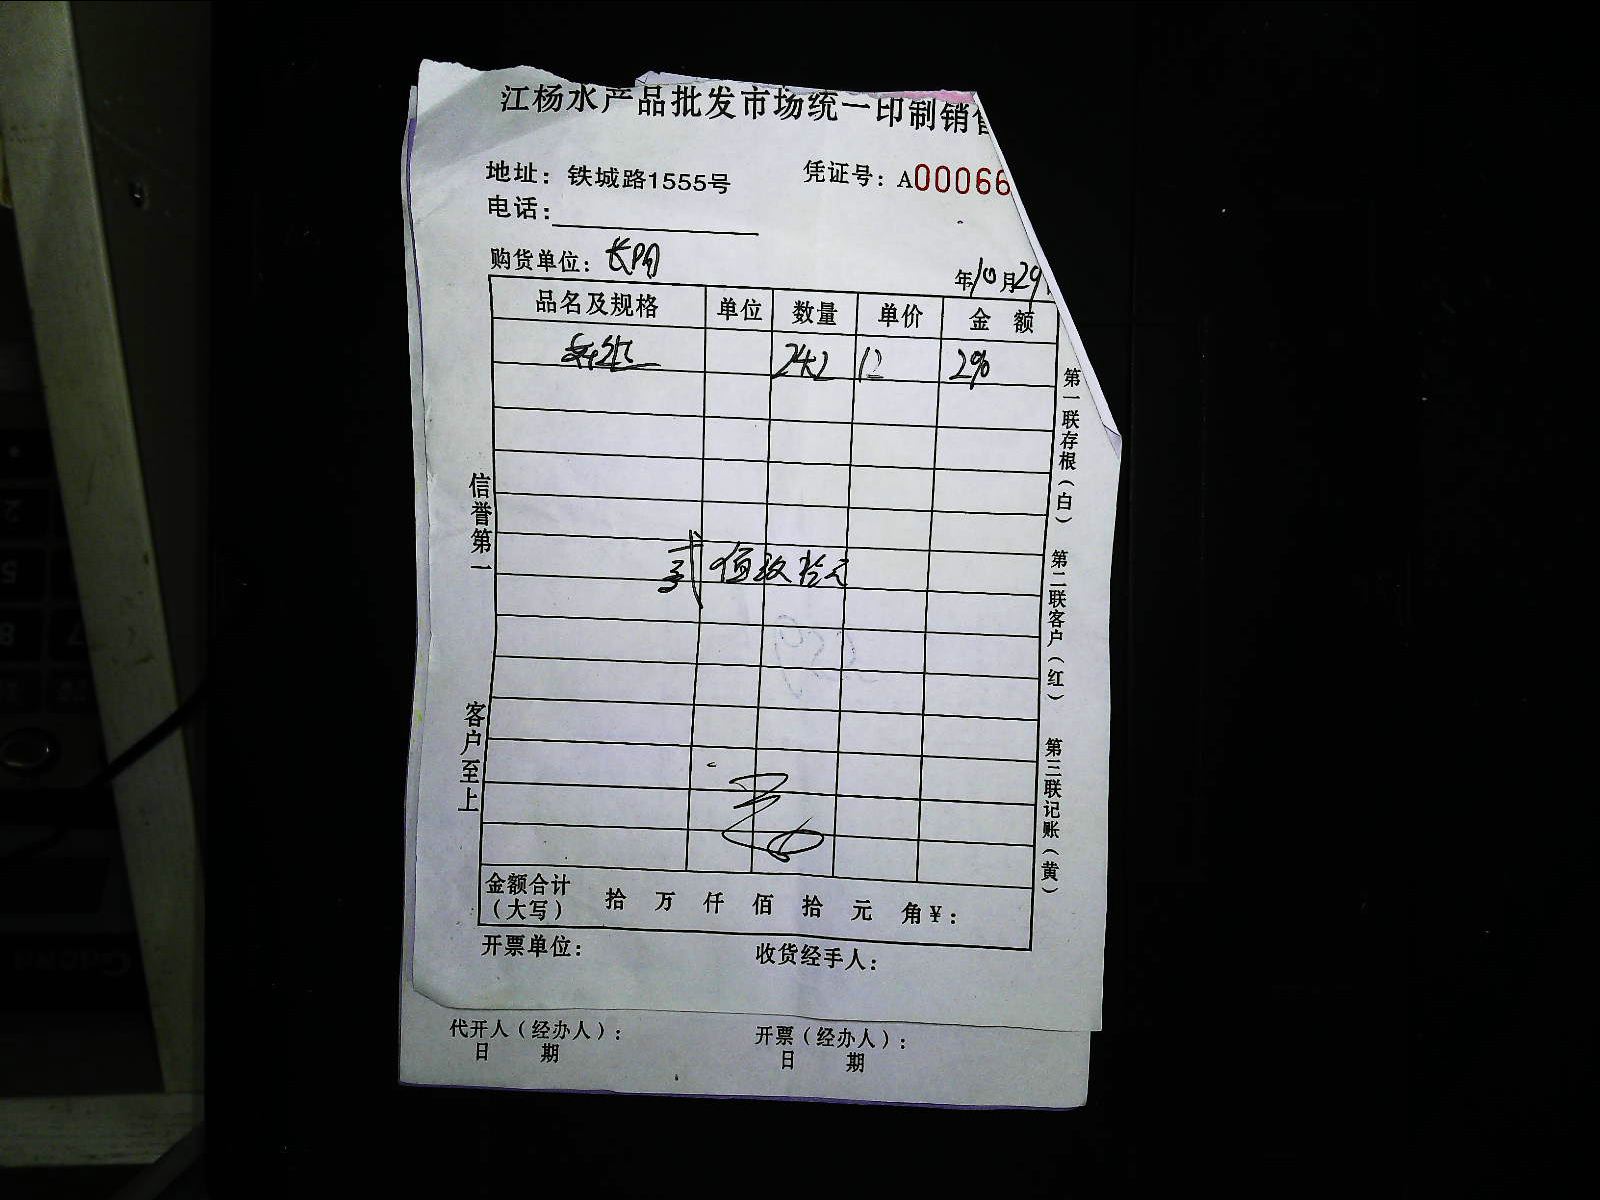 江杨水产品批发市场统一印制销售
地址：铁城路1555号
凭证号：A00066
电话：
购货单位：长阳
年10月29
品名及规格 单位 数量 单价 金 额
242 12 290
贰佰玖拾元
信誉第一
客户至上
第一联存根（白）
第二联客户（红）
第三联记账（黄）
金额合计（大写） 拾 万 仟 佰 拾 元 角￥：
开票单位：
收货经手人：
代开人（经办人）：
日 期
开票（经办人）：
日 期